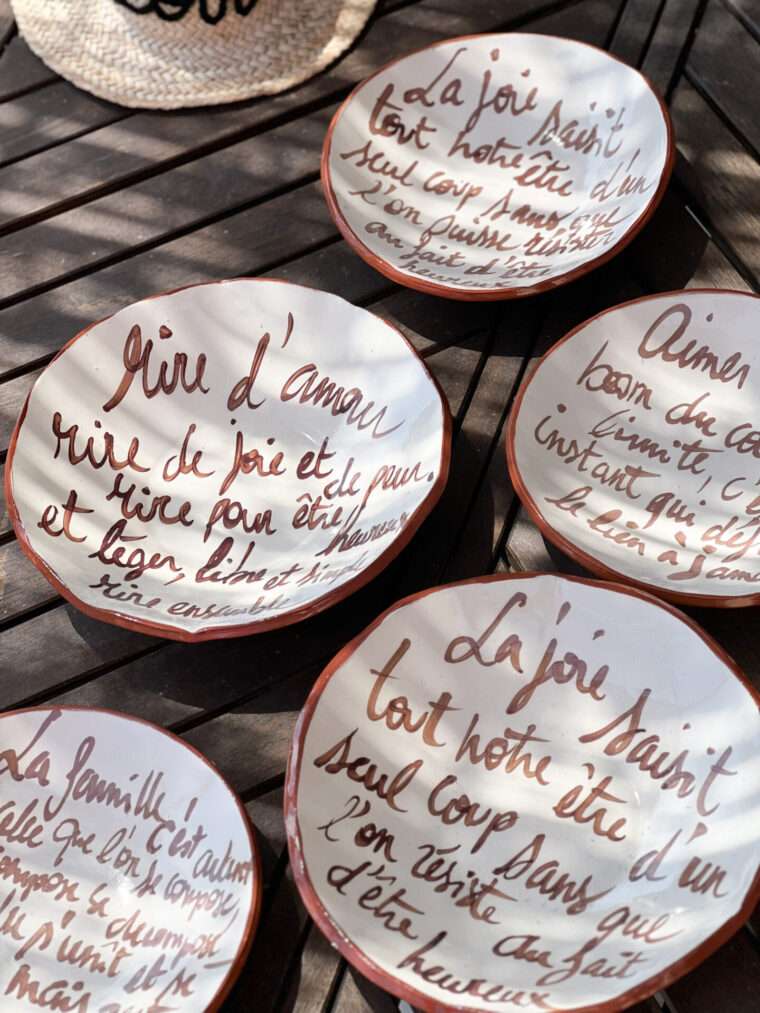 La joie saisit
tout notre être d'un
seul coup sans que
l'on puisse résister
au fait d'être
heureux
Rire d'amour
rire de joie et de peur.
rire pour être heureux
et léger, libre et simple
rire ensemble
Aimer
boom du co
limite, c'e
instant qui déf
le lien à jama
La joie saisit
tout notre être d'un
seul coup sans que
l'on résiste au fait
d'être heureux
La famille, c'est autant
celle que l'on se compose,
compose se décompose
s'unit et se
mais